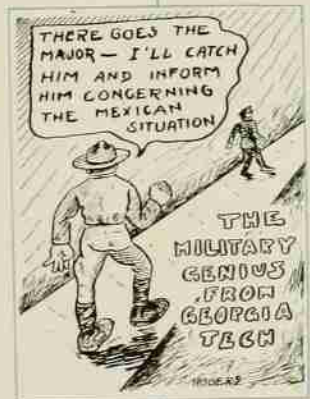 THERE GOES THE
MAJOR — I'LL CATCH
HIM AND INFORM
HIM CONCERNING
THE MEXICAN
SITUATION
THE
MILITARY
GENIUS
FROM
GEORGIA
TECH